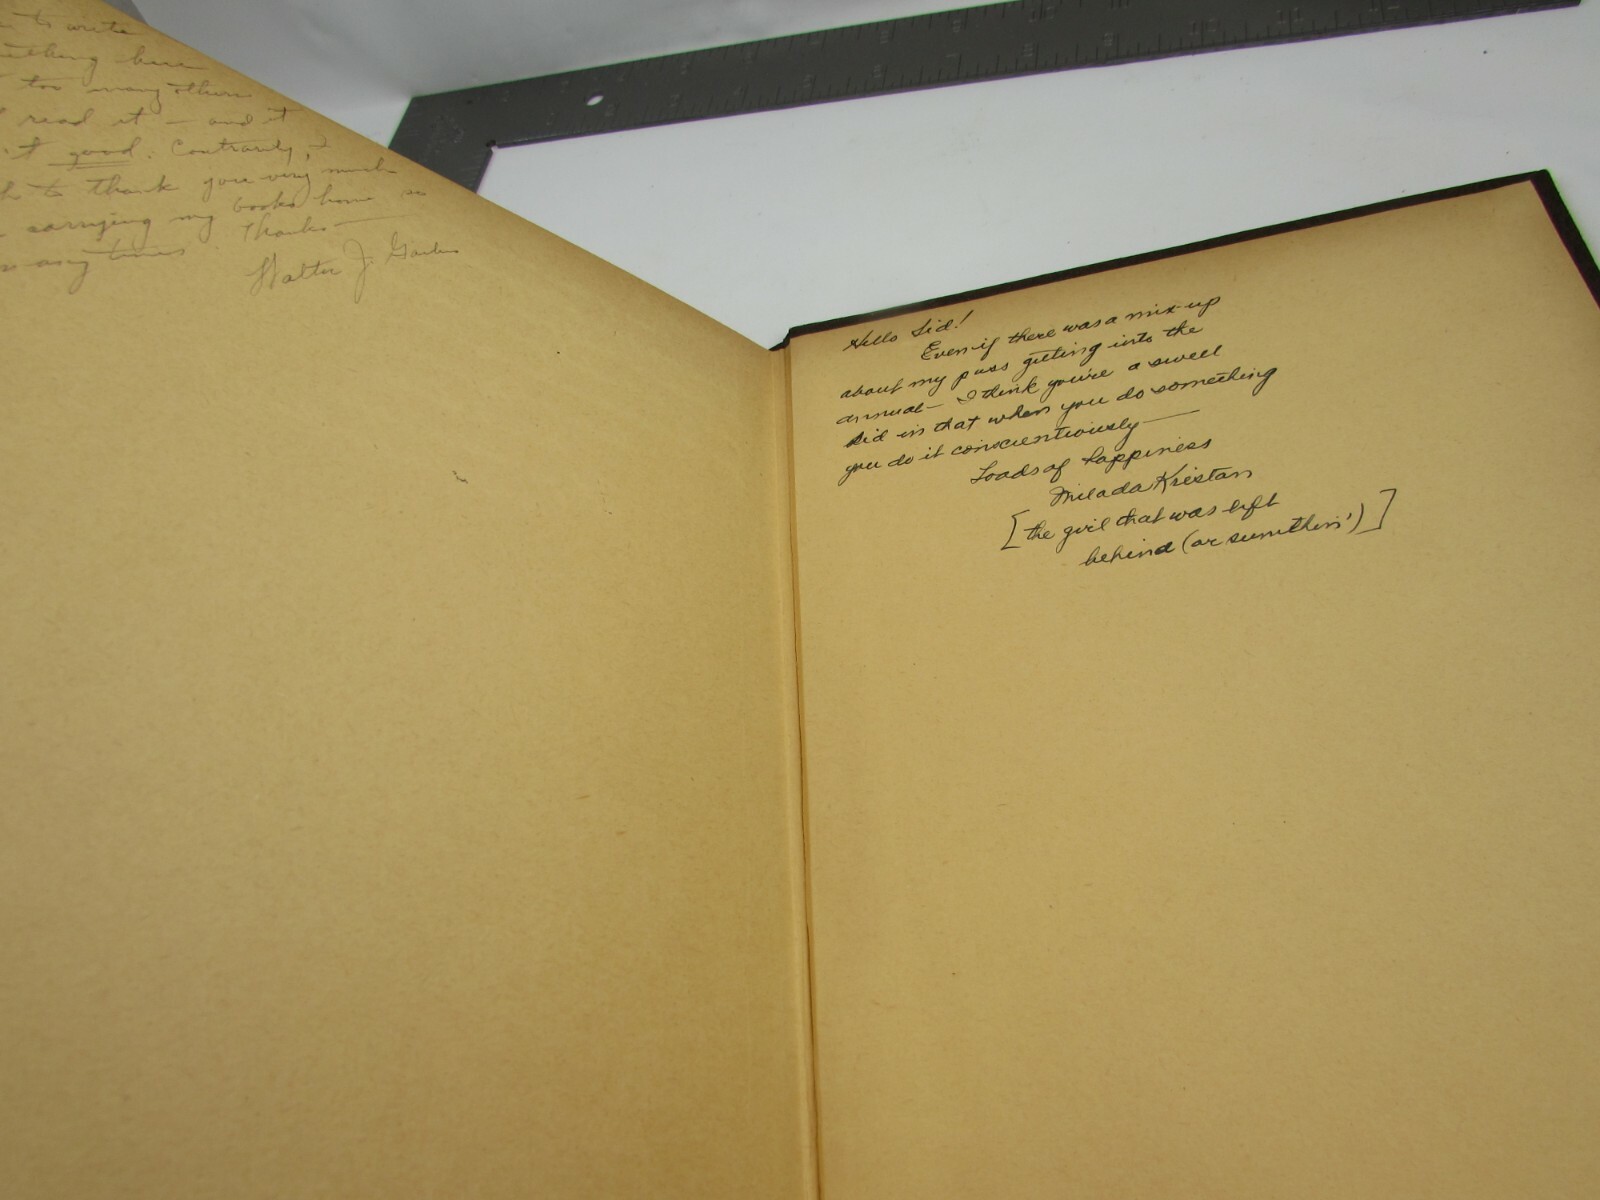 to write
here
too many others
read it — and it
good. Contrarily, I
to thank you very much
carrying my books home so
many times. Thanks —
Walter J.
Hello Sid!
Even if there was a mix-up
about my puss getting into the
annual — I think you're a swell
kid in that when you do something
you do it conscientiously —
Loads of happiness
Milada Kristan
[the girl that was left
behind (or sumthin')]